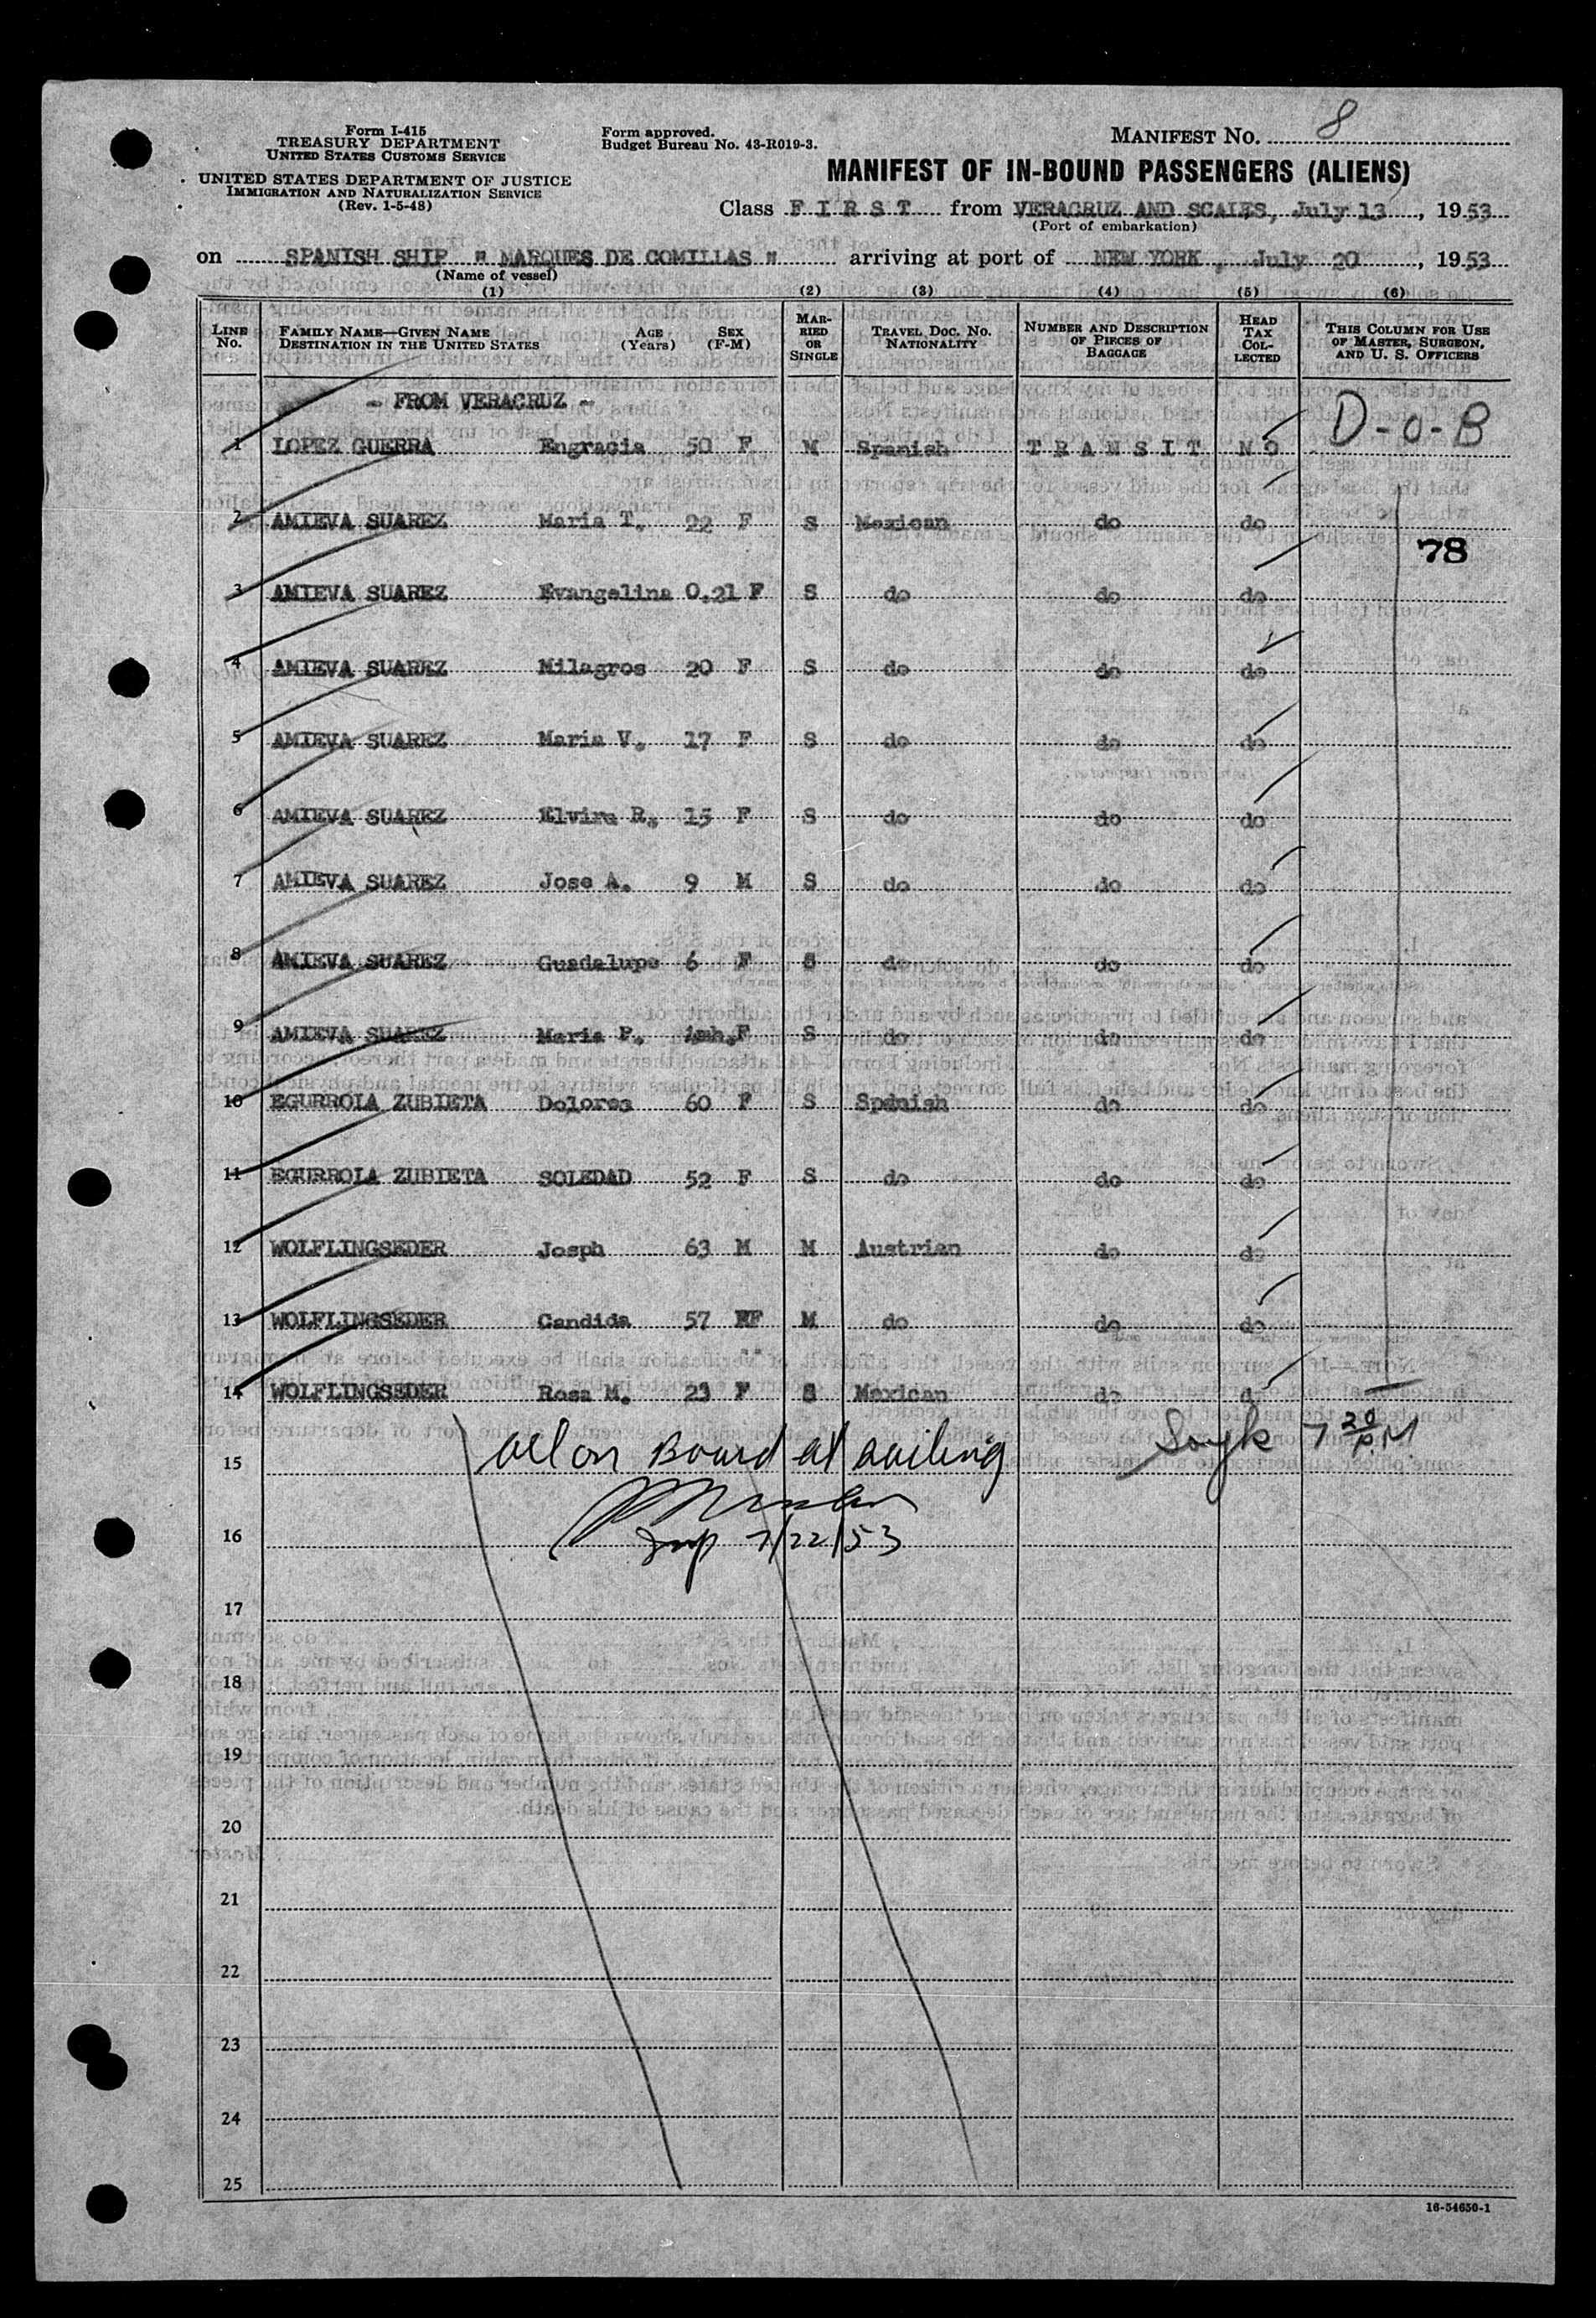 Form I-415
TREASURY DEPARTMENT
UNITED STATES CUSTOMS SERVICE
UNITED STATES DEPARTMENT OF JUSTICE
IMMIGRATION AND NATURALIZATION SERVICE
(Rev. 1-5-48)
Form approved.
Budget Bureau No. 43-R019-3.
MANIFEST NO. 8
MANIFEST OF IN-BOUND PASSENGERS (ALIENS)
Class F I R S T from VERACRUZ AND SCALES, July 13, 1953
(Port of embarkation)
on SPANISH SHIP " MARQUES DE COMILLAS " arriving at port of NEW YORK, July 20, 1953
(Name of vessel)
(1) (2) (3) (4) (5) (6)
LINE NO. FAMILY NAME—GIVEN NAME DESTINATION IN THE UNITED STATES AGE (Years) SEX (F-M) MARRIED OR SINGLE TRAVEL DOC. NO. NATIONALITY NUMBER AND DESCRIPTION OF PIECES OF BAGGAGE HEAD TAX COLLECTED THIS COLUMN FOR USE OF MASTER, SURGEON, AND U. S. OFFICERS
- FROM VERACRUZ -
1 LOPEZ GUERRA Engracia 50 F M Spanish T R A N S I T N O D-O-B
2 AMIEVA SUAREZ Maria T. 22 F S Mexican do do
78
3 AMIEVA SUAREZ Evangelina 0.21 F S do do do
4 AMIEVA SUAREZ Milagros 20 F S do do do
5 AMIEVA SUAREZ Maria V. 17 F S do do do
6 AMIEVA SUAREZ Elvira R. 15 F S do do do
7 AMIEVA SUAREZ Jose A. 9 M S do do do
8 AMIEVA SUAREZ Guadalupe 6 F S do do do
9 AMIEVA SUAREZ Maria P. F S do do do
10 EGURROLA ZUBIETA Dolores 60 F S Spanish do do
11 EGURROLA ZUBIETA SOLEDAD 52 F S do do do
12 WOLFLINGSEDER Josph 63 M M Austrian do do
13 WOLFLINGSEDER Candida 57 F M do do do
14 WOLFLINGSEDER Rosa M. 23 F S Mexican do d
15 All on Board at sailing 7 20 PM
16 Insp 7/22/53
17
18
19
20
21
22
23
24
25
16-54650-1